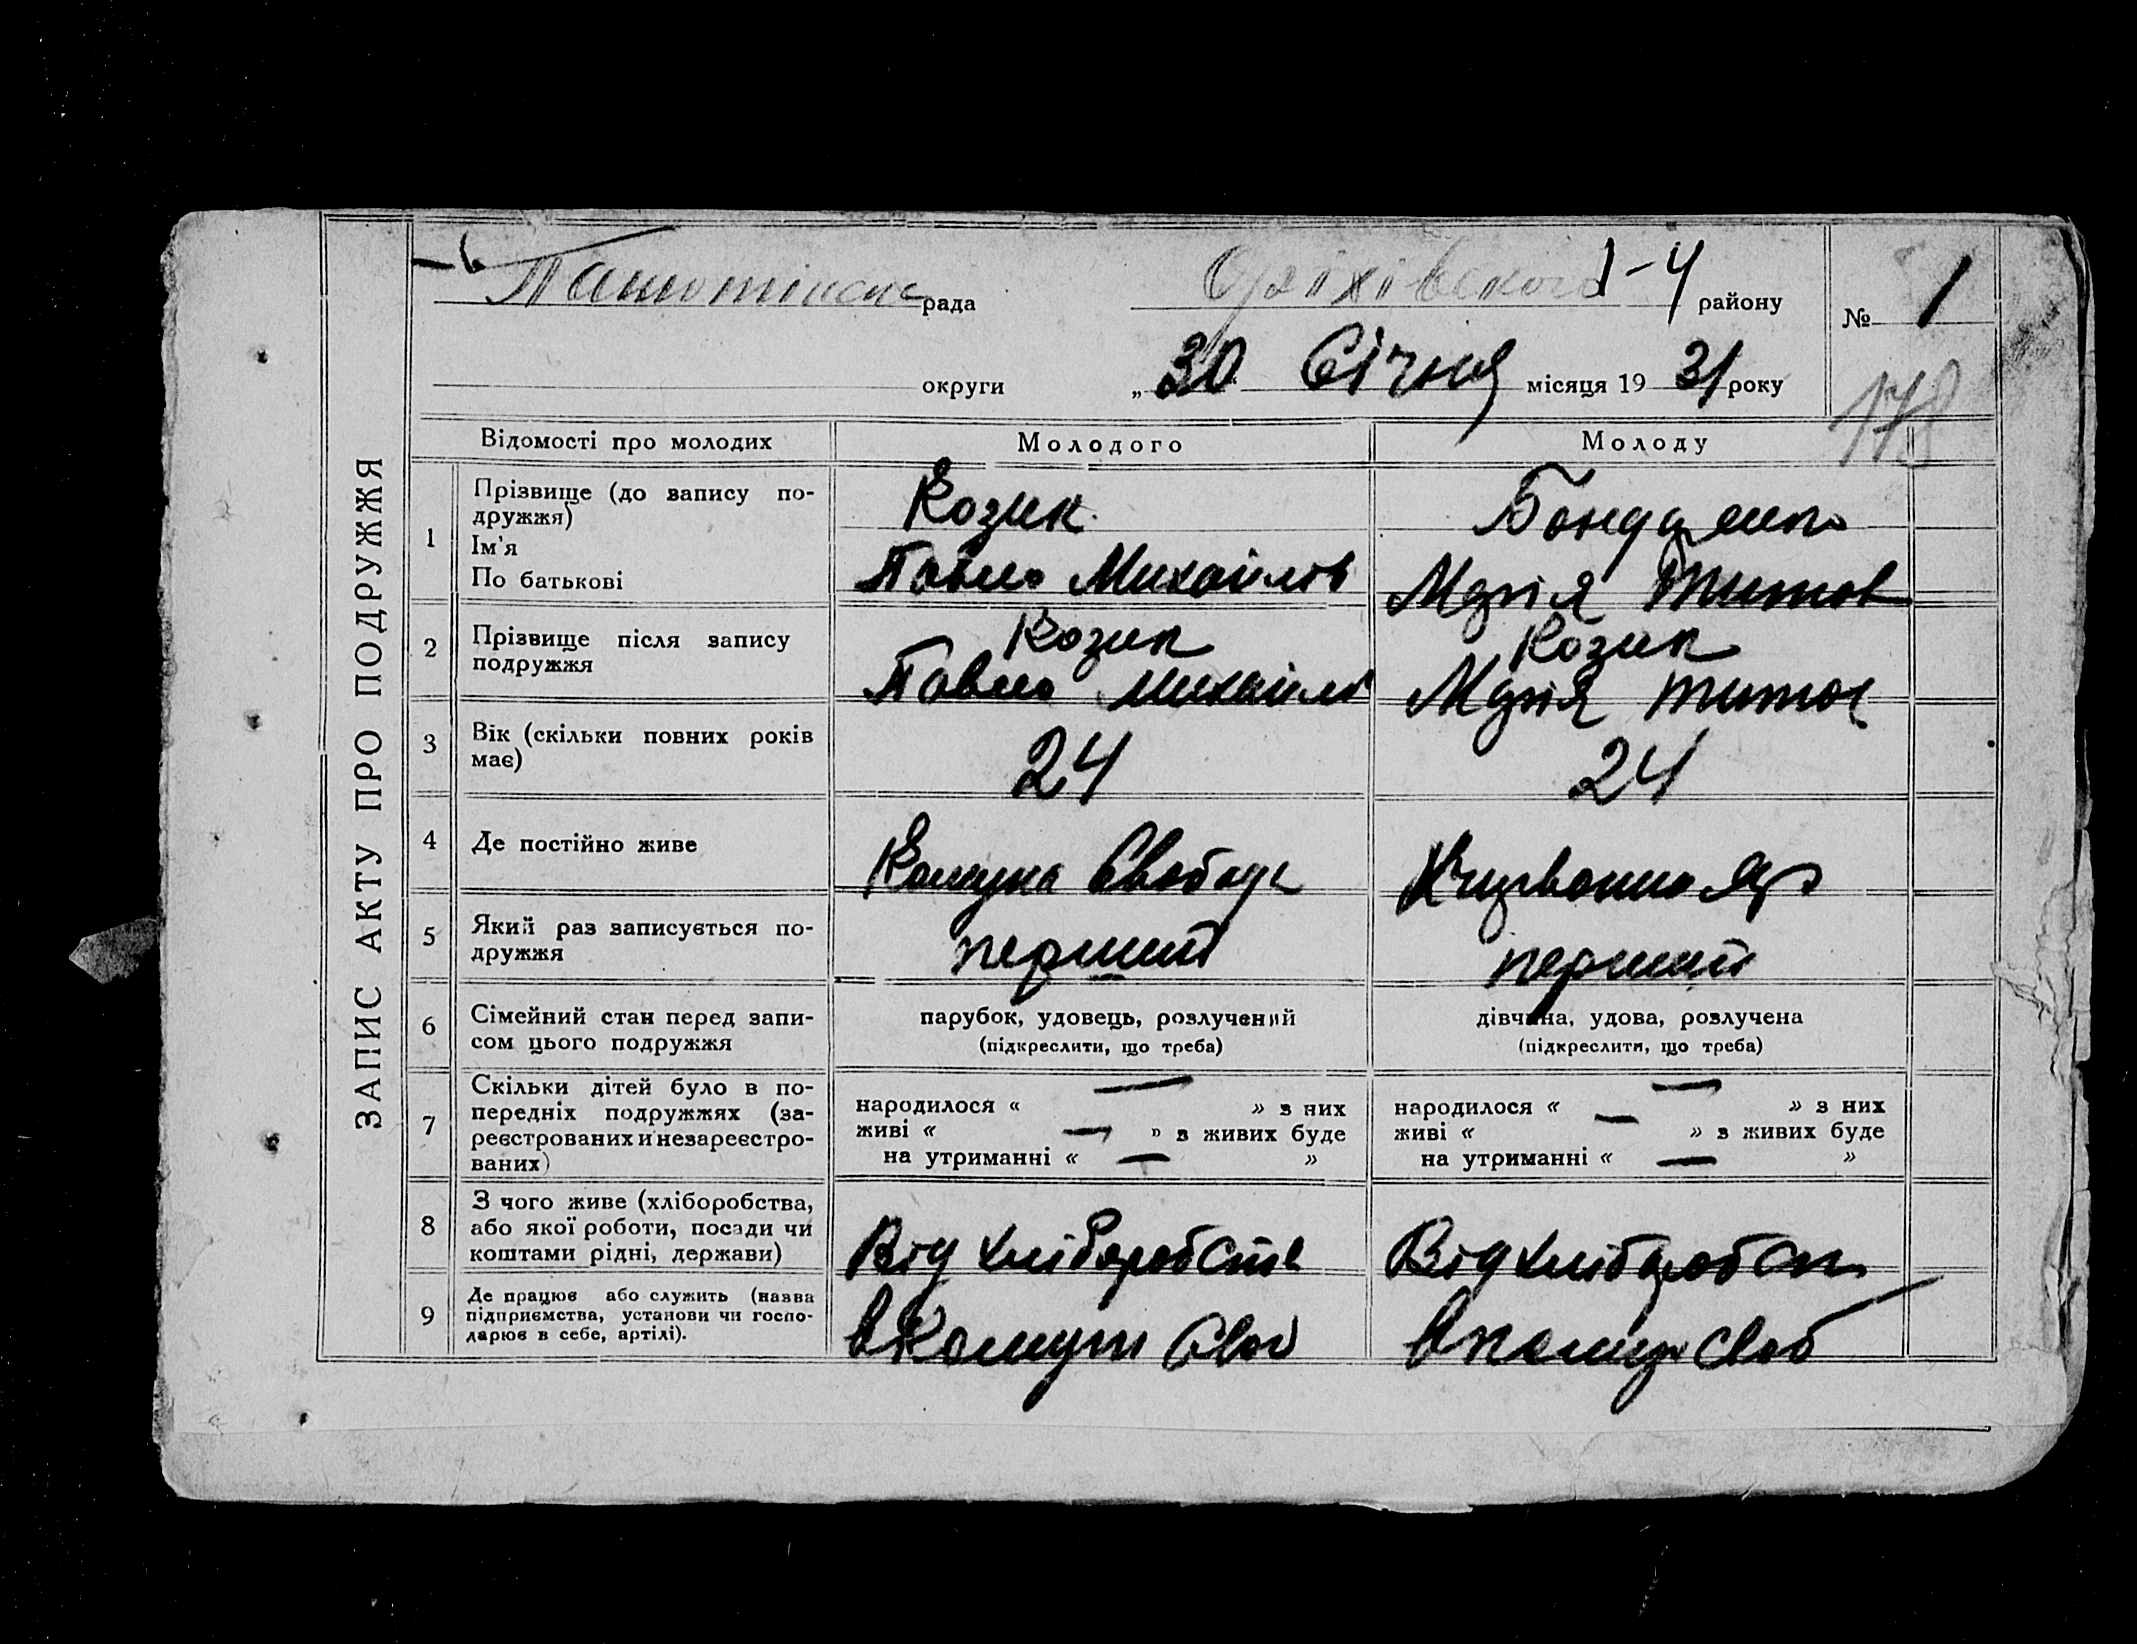 ЗАПИС АКТУ ПРО ПОДРУЖЖЯ
рада
Оріхівського 1-4 району
№ 1
округи
„30 Січня місяця 1931 року
178
Відомості про молодих
Молодого
Молоду
1
Прізвище (до запису по-
дружжя)
Ім'я
По батькові
Козик
Павло Михайлів
Бондаренко
Марія Титов
2
Прізвище після запису
подружжя
Козик
Павло Михайлів
Козик
Марія Титов
3
Вік (скільки повних років
має)
24
24
4
Де постійно живе
Комуна Свобода
Яр
5
Який раз записується по-
дружжя
перший
перший
6
Сімейний стан перед запи-
сом цього подружжя
парубок, удовець, розлучений
(підкреслити, що треба)
дівчина, удова, розлучена
(підкреслити, що треба)
7
Скільки дітей було в по-
передніх подружжях (за-
реєстрованих и незареєстро-
ваних)
народилося « — » з них
живі « — » з живих буде
на утриманні « — »
народилося « — » з них
живі « — » з живих буде
на утриманні « — »
8
З чого живе (хліборобства,
або якої роботи, посади чи
коштами рідні, держави)
Від хліборобств
Від хліборобст
9
Де працює або служить (назва
підприємства, установи чи госпо-
дарює в себе, артілі).
в Комуні Своб
в комун Своб